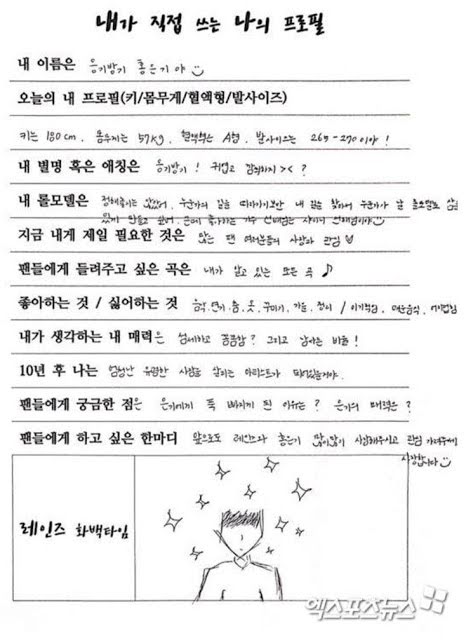 내가 직접 쓰는 나의 프로필
내 이름은 응기방기 홍은기야
오늘의 내 프로필(키/몸무게/혈액형/발사이즈)
키는 180cm, 몸무게는 57kg, 혈액형은 A형, 발사이즈는 265-270이야!
내 별명 혹은 애칭은 응기방기! 귀엽고 깜찍하지 >< ?
내 롤모델은 정해놓지는 않았어, 누군가의 길을 따라가기보단 내 길을 찾아서 누군가가 날 롤모델로 삼을
있게 만들고 싶어. 근데 좋아하는 가수 선배님은 샤이니 선배님이야
지금 내게 제일 필요한 것은 많은 팬 여러분들의 사랑과 관심
팬들에게 들려주고 싶은 곡은 내가 알고 있는 모든 곡
좋아하는 것 / 싫어하는 것 음악, 연기, 춤, 옷, 꾸미기, 가을, 전시 / 이기적임, 매운음식,
내가 생각하는 내 매력은 섬세하고 꼼꼼함? 그리고 남다른 비율!
10년 후 나는 엄청난 유명한 사람을 살리는 아티스트가 되어있을거야.
팬들에게 궁금한 점은 은기에게 푹 빠지게 된 이유는? 은기의 매력은?
팬들에게 하고 싶은 한마디 앞으로도 레인즈와 홍은기 많이많이 사랑해주시고 관심 가져주세요
사랑합니다
레인즈 화백타임
엑스포츠뉴스